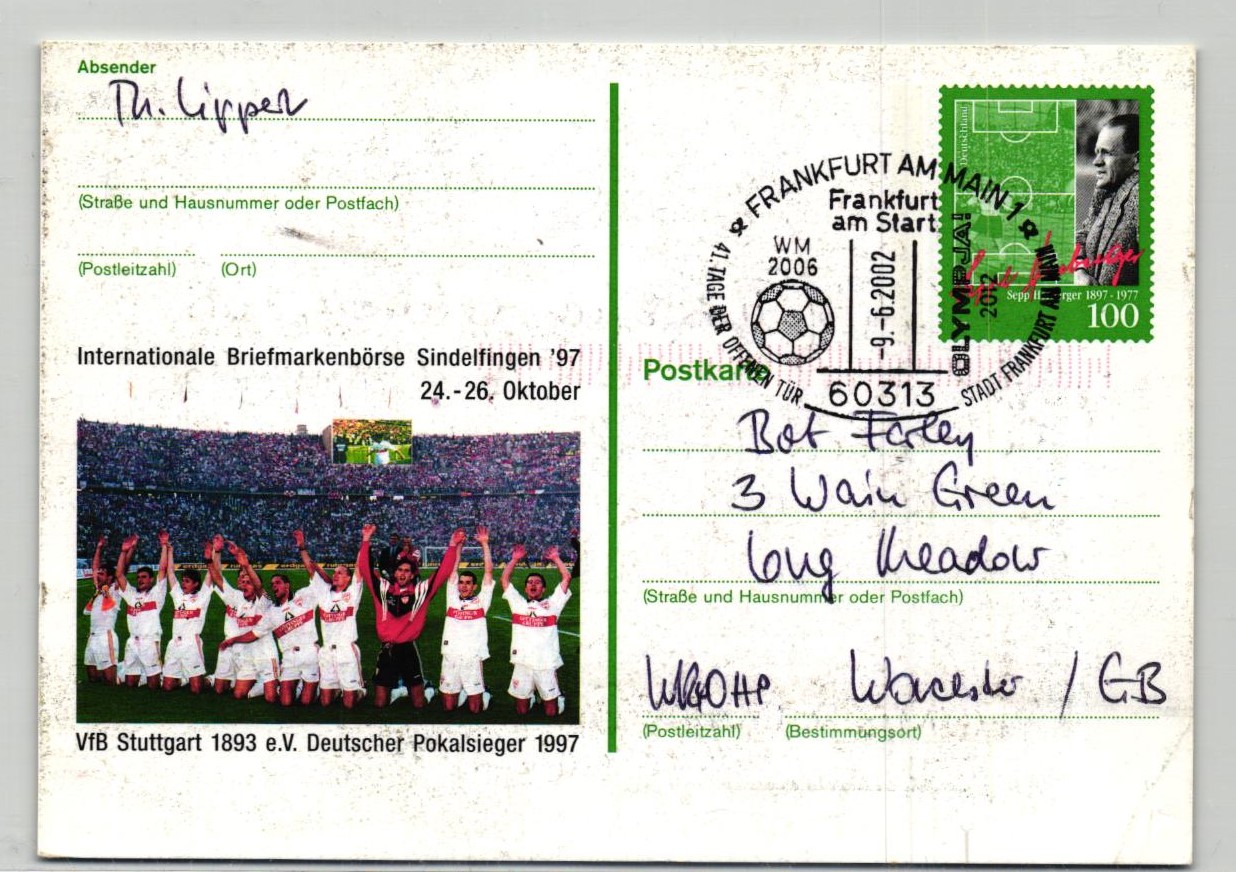 Absender
Th. Lipper
(Straße und Hausnummer oder Postfach)
(Postleitzahl) (Ort)
Internationale Briefmarkenbörse Sindelfingen '97
24.-26. Oktober
VfB Stuttgart 1893 e.V. Deutscher Pokalsieger 1997
Deutschland
Sepp Herberger 1897 - 1977
100
FRANKFURT AM MAIN 1
Frankfurt
am Start
WM
2006
-9.-6.2002
OLYMPJA!
2012
60313
41. TAGE DER OFFENEN TÜR
STADT FRANKFURT AM MAIN
Postkarte
Bob Farley
3 Wain Green
Long Meadow
(Straße und Hausnummer oder Postfach)
Worcester / GB
(Postleitzahl) (Bestimmungsort)